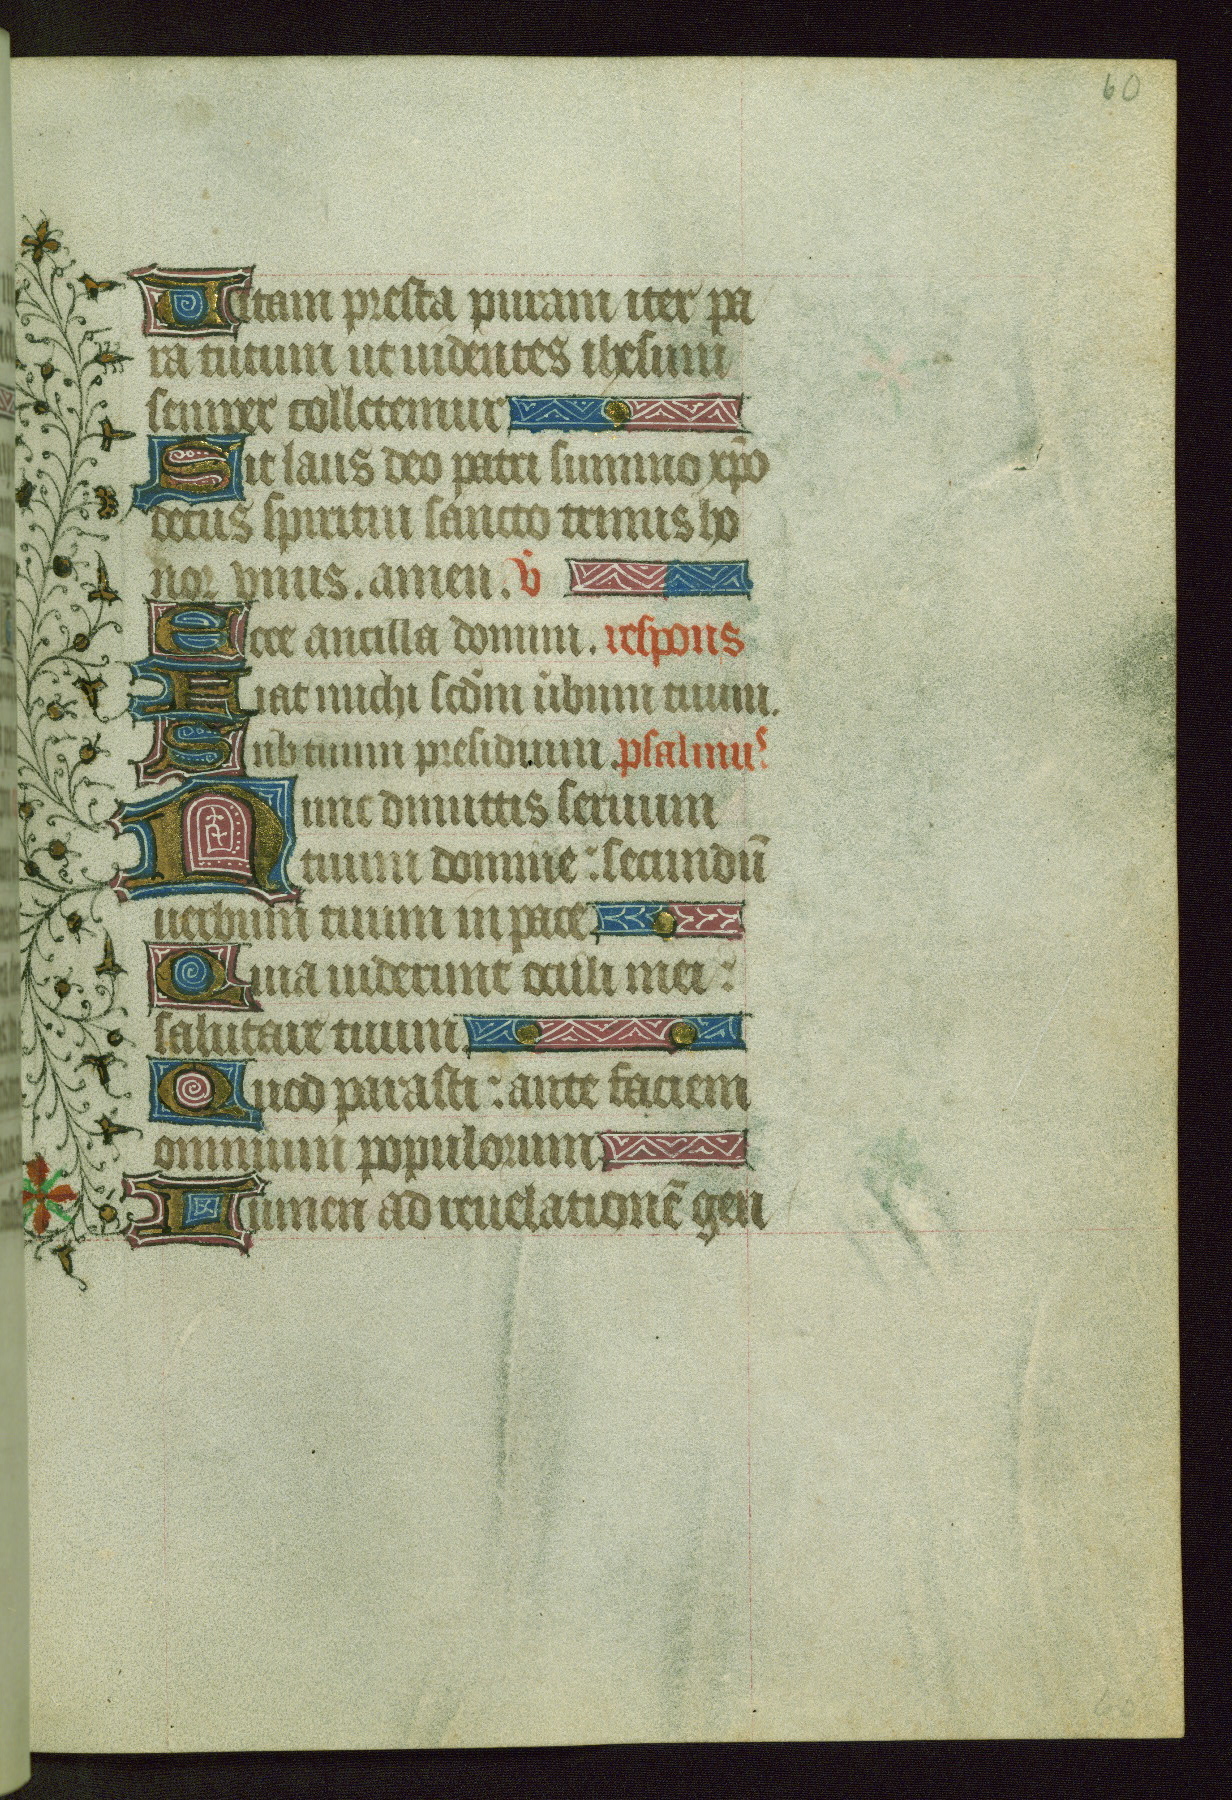 60
Uitam presta puram iter pa
ra tutum ut uidentes ihesum
semper colletemur
Sit laus deo patri summo xp̄o
decus spiritui sancto trinus ho
nor vnus. amen. v̄
Ecce ancilla domini. respons
Fiat michi scdm̄ ūbum tuum.
Sub tuum presidium. psalmus
Nunc dimittis seruum
tuum domine : secundū
uerbum tuum in pace
Quia uiderunt oculi mei :
salutare tuum
Quod parasti : ante faciem
omnium populorum
Lumen ad reuelationē gen
60